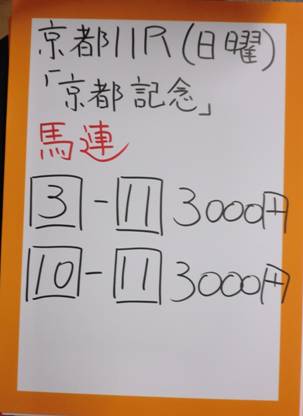 京都11R(日曜)
「京都記念」
馬連
3-11 3000円
10-11 3000円